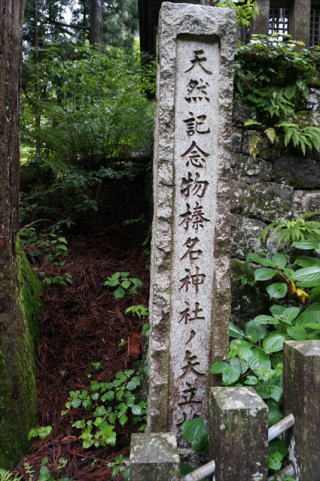 天然記念物榛名神社ノ矢立